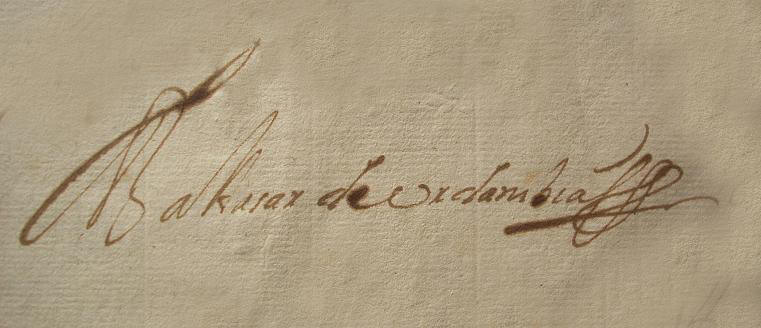 Baltasar de Urdanibia